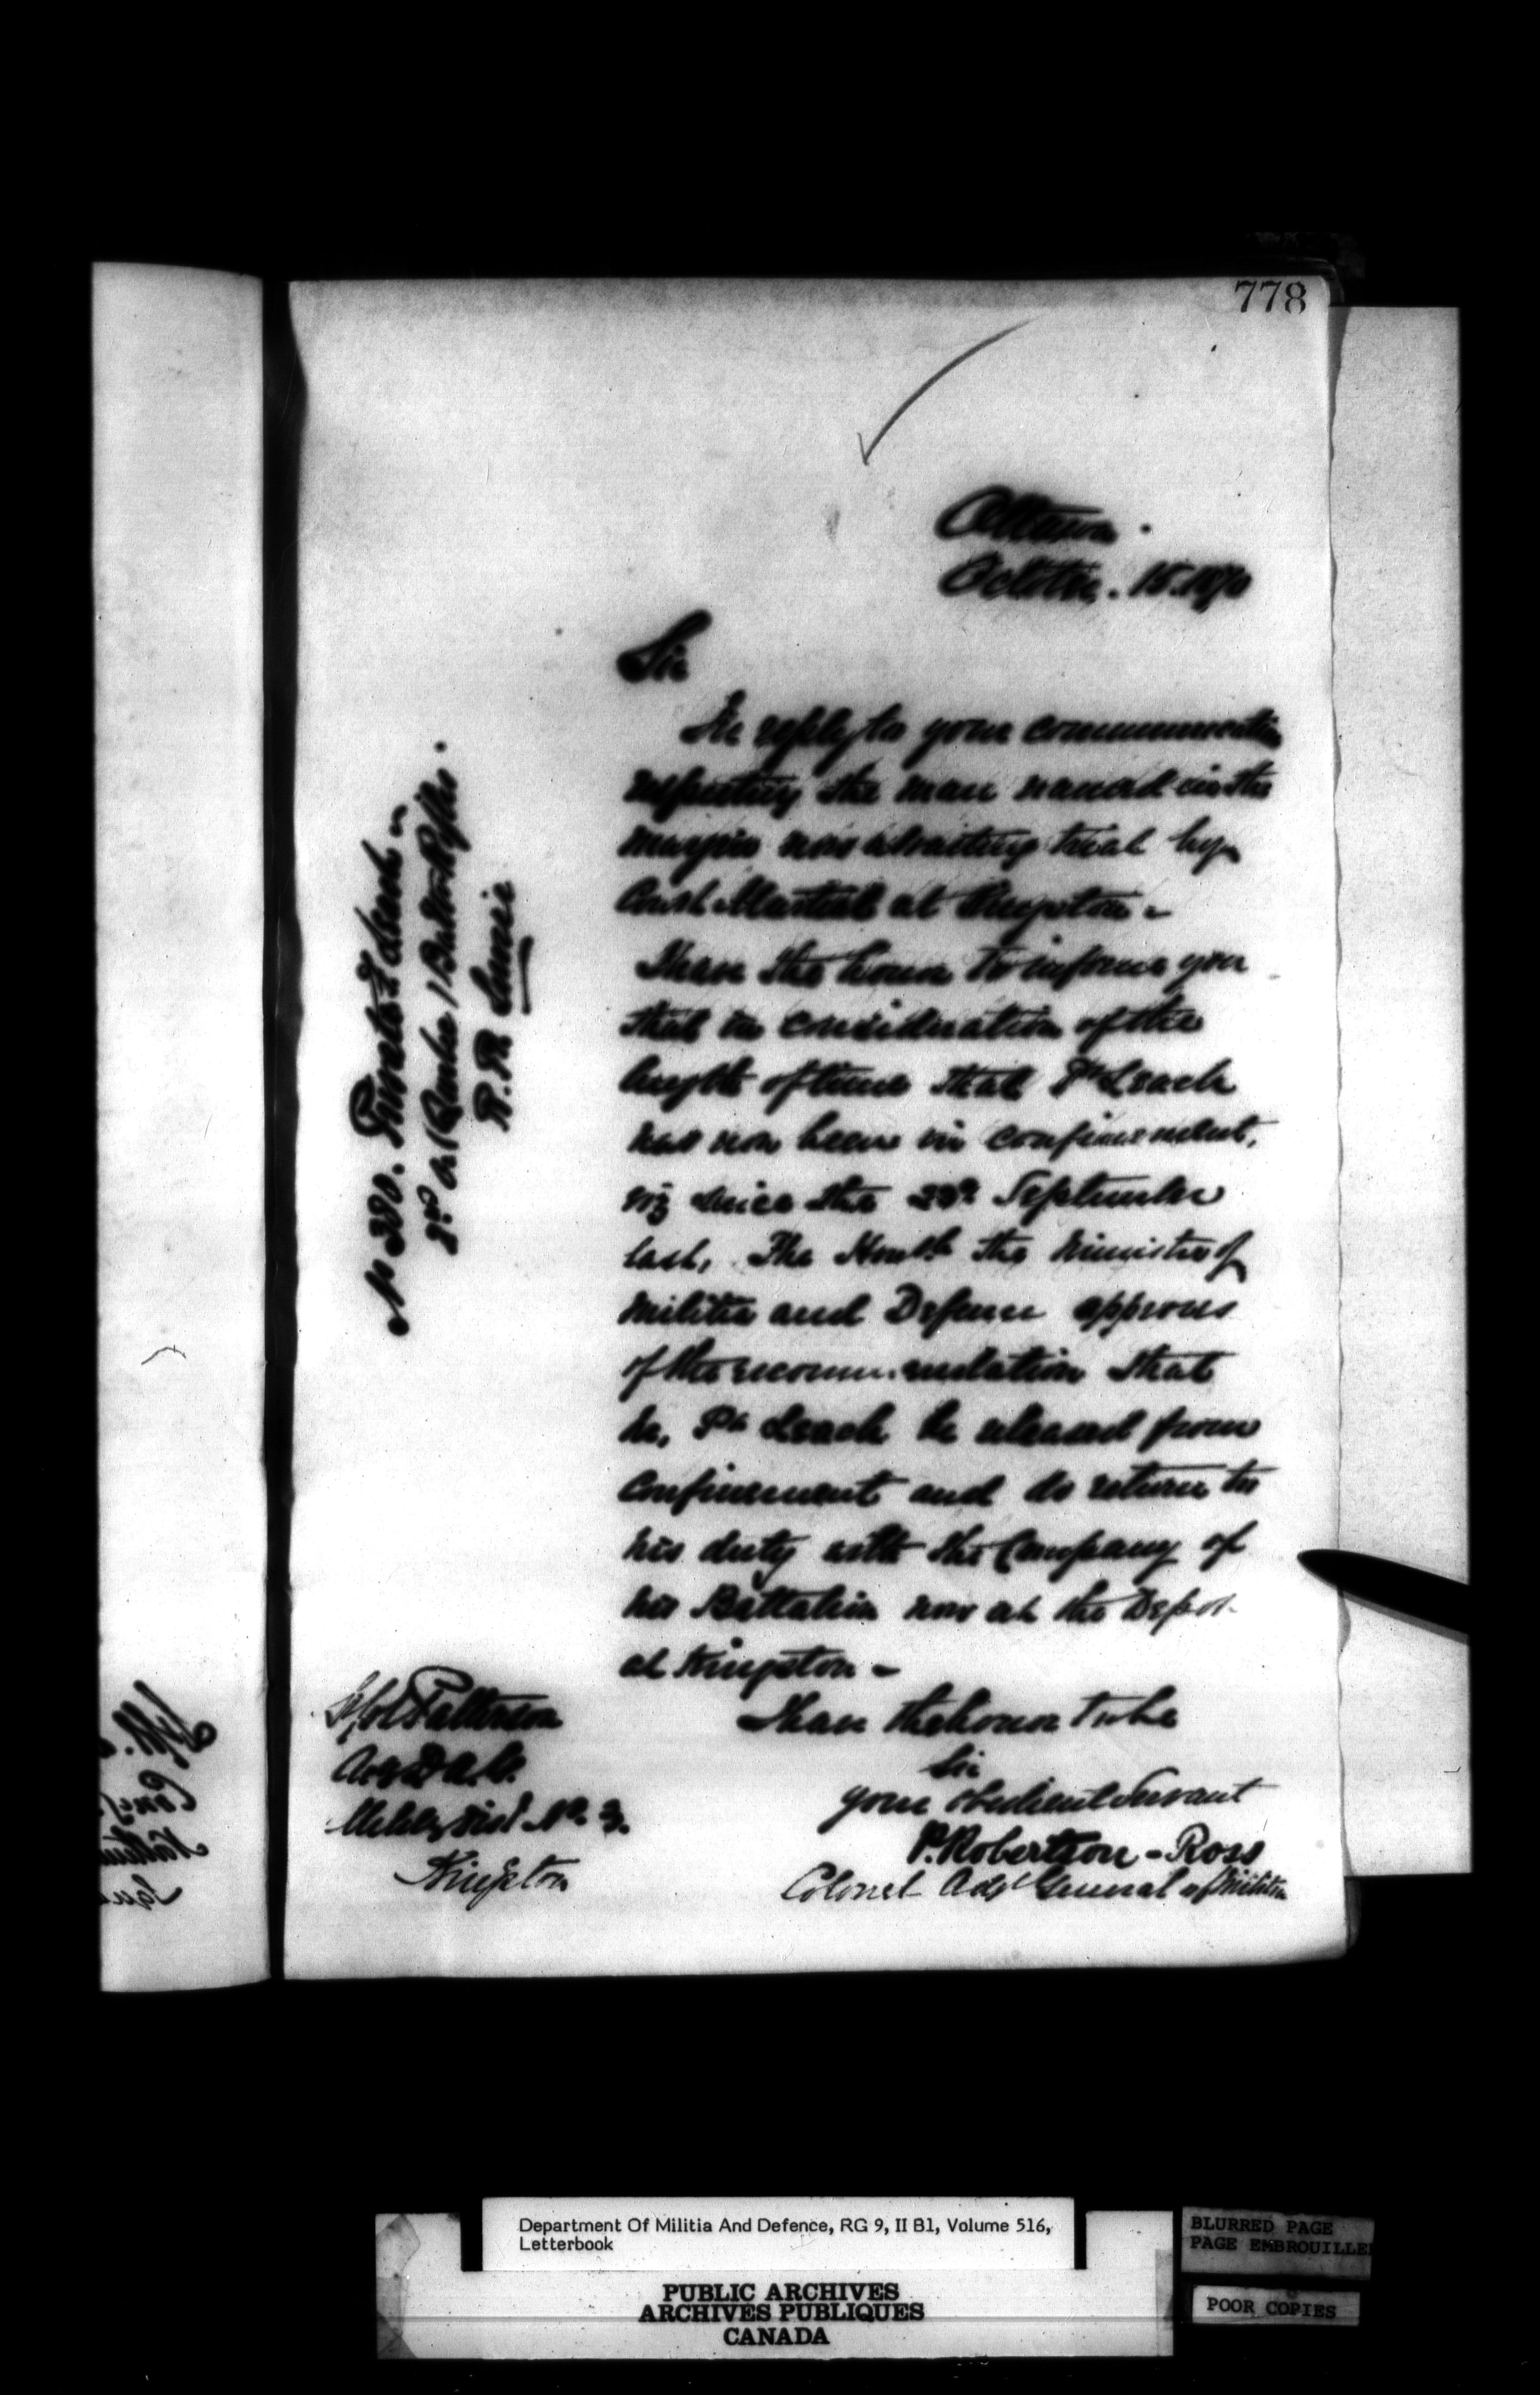 778
Ottawa.
October. 15. 1870
Sir
In reply to your communication
respecting the man named in the
margin now awaiting trial by
Court Martial at Kingston -
I have the honor to inform you
that in consideration of the
length of time that Pte Leach
has now been in confinement,
viz since the September
last, The Honble the Minister of
Militia and Defence approves
of the recommendation that
he, Pte Leach be released from
confinement and do return to
his duty with the Company of
his Battalion now at the Depot
at Kingston -
I have the honor to be
Sir
your obedient Servant
P. Robertson - Ross
Colonel Adjt General of Militia
No 380. Private Leach
1 Batn Rifles.
Lt Col Patterson
Actg D.A.G.
Military Dist No. 3.
Kingston
Department Of Militia And Defence, RG 9, II B1, Volume 516,
Letterbook
PUBLIC ARCHIVES
ARCHIVES PUBLIQUES
CANADA
BLURRED PAGE
PAGE EMBROUILLEE
POOR COPIES